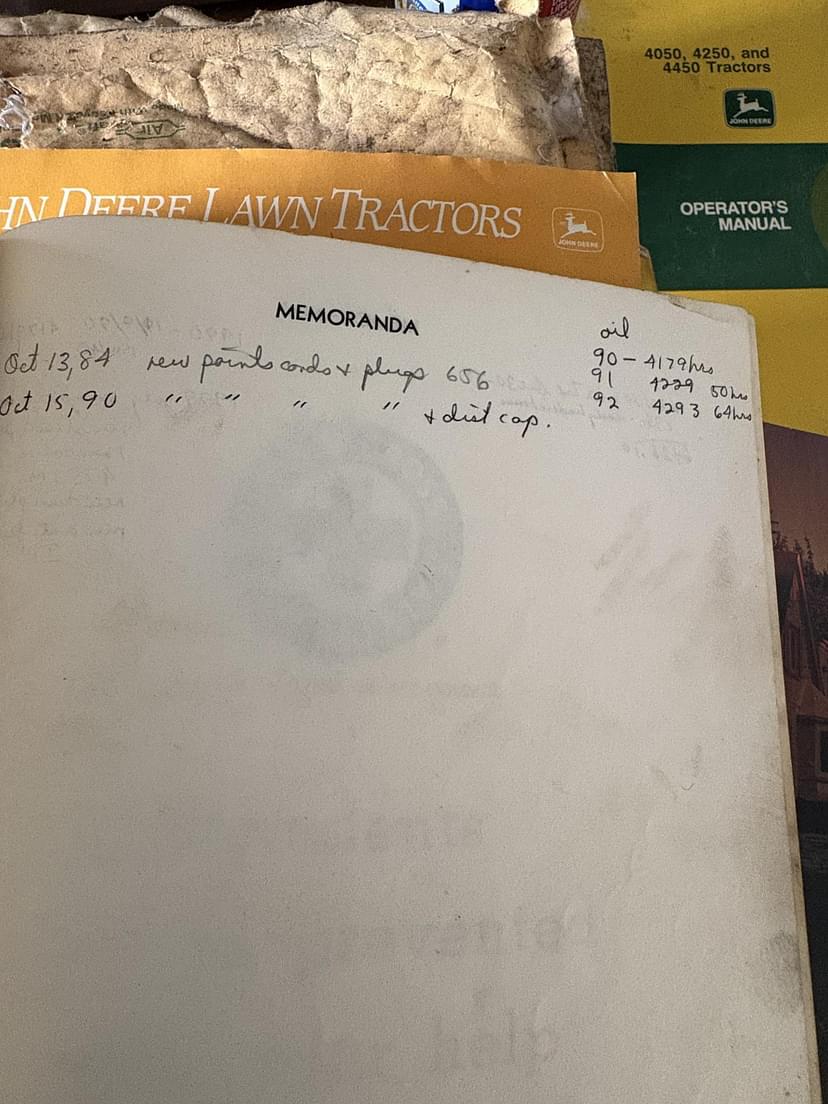 4050, 4250, and
4450 Tractors
JOHN DEERE
OPERATOR'S
MANUAL
HN DEERE LAWN TRACTORS
JOHN DEERE
MEMORANDA
oil
90 - 4179 hrs
91 4229 50 hrs
92 4293 64 hrs
Oct 13, 84 new points conds & plugs 656
Oct 15, 90 " " " " & dist cap.